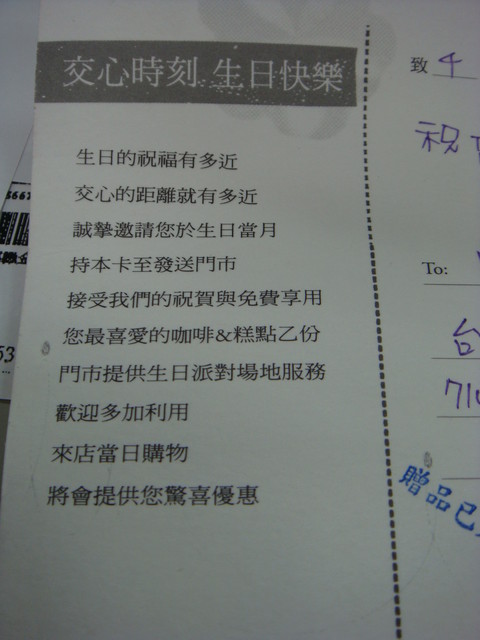 交心時刻 生日快樂
生日的祝福有多近
交心的距離就有多近
誠摯邀請您於生日當月
持本卡至發送門市
接受我們的祝賀與免費享用
您最喜愛的咖啡&糕點乙份
門市提供生日派對場地服務
歡迎多加利用
來店當日購物
將會提供您驚喜優惠
致
祝
To:
台
710
贈品已
53